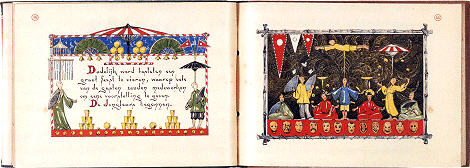 Dadelijk werd besloten een
groot feest te vieren, waarop vele
van de gasten zouden medewerken
om eene voorstelling te geven.
De Jongleurs begonnen.